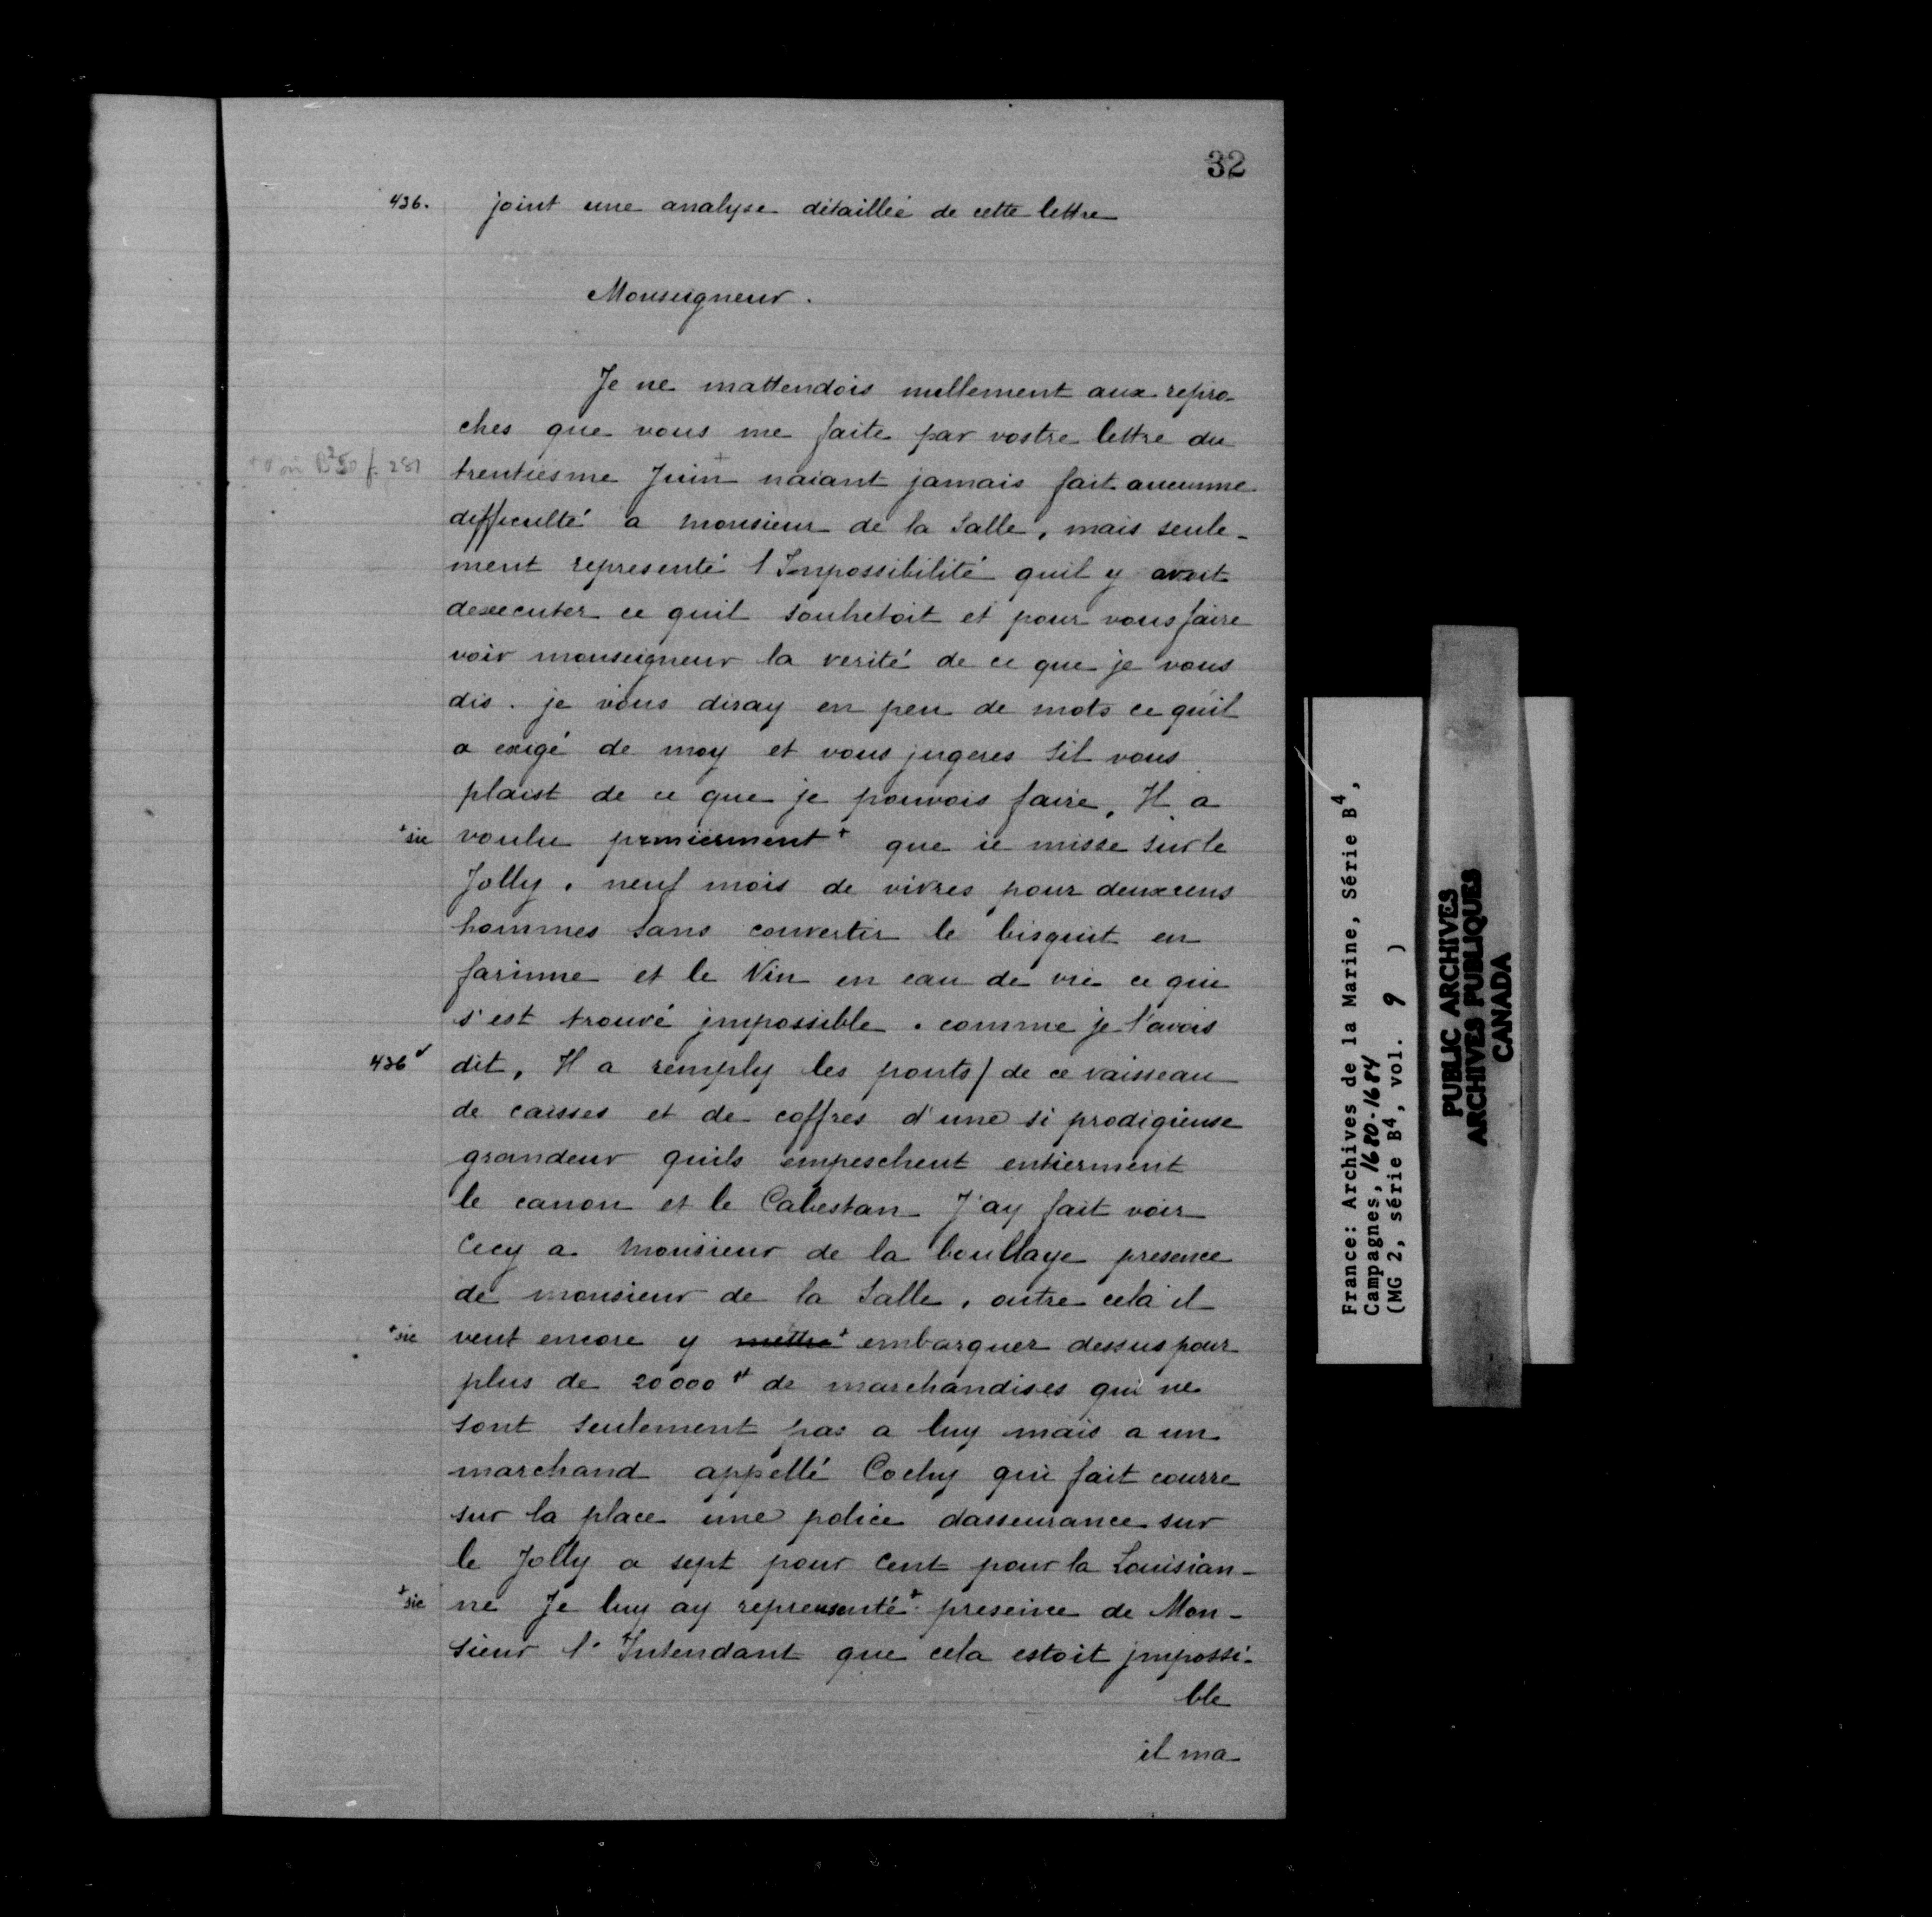 32
436. joint une analyse détaillée de cette lettre
Monseigneur.
Je ne mattendois nullement aux repro-
ches que vous me faite par vostre lettre du
+ Voir B² 50 f. 281 trentiesme Juin + naiant jamais fait aucunne
difficulté a monsieur de la Salle, mais seule-
ment representé l'Impossibilité quil y avait
dexecuter ce quil souhetoit et pour vous faire
voir monseigneur la verité de ce que je vous
dis. je vous diray en peu de mots ce quil
a exigé de moy et vous jugeres Sil vous
plaist de ce que je pouvois faire, Il a
+ sic voulu prmierment + que ie misse sur le
Jolly, neuf mois de vivres pour deuxcens
hommes sans convertir le bisquit en
farinne et le Vin en eau de vie ce qui
s'est trouvé jmpossible. comme je l'avois
436 v dit, Il a remply les ponts / de ce vaisseau
de caisses et de coffres d'une si prodigieuse
grandeur quils empeschent entierment
le canon et le Cabestan J'ay fait voir
Cecy a Monsieur de la boullaye presence
de monsieur de la Salle, outre cela il
+ sic veut encore y mettre + embarquer dessus pour
plus de 20000 ₶ de marchandises qui ne
sont seulement pas a luy mais a un
marchand appellé Cochy qui fait courre
sur la place une police dasseurance sur
le Jolly a sept pour Cent pour la Louisian-
+ sic ne Je luy ay repreusenté + presence de Mon-
sieur l'Intendant que cela estoit jmpossi-
ble
il ma
France: Archives de la Marine, Série B⁴,
Campagnes, 1680-1684
(MG 2, série B⁴, vol. 9 )
PUBLIC ARCHIVES
ARCHIVES PUBLIQUES
CANADA